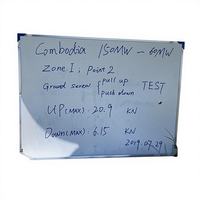 Cambodia 150MW - 60MW
Zone I; Point 2
Ground screw { pull up
push down TEST
UP(MAX): 20.9 KN
Down(MAX): 6.15 KN
2019.07.29